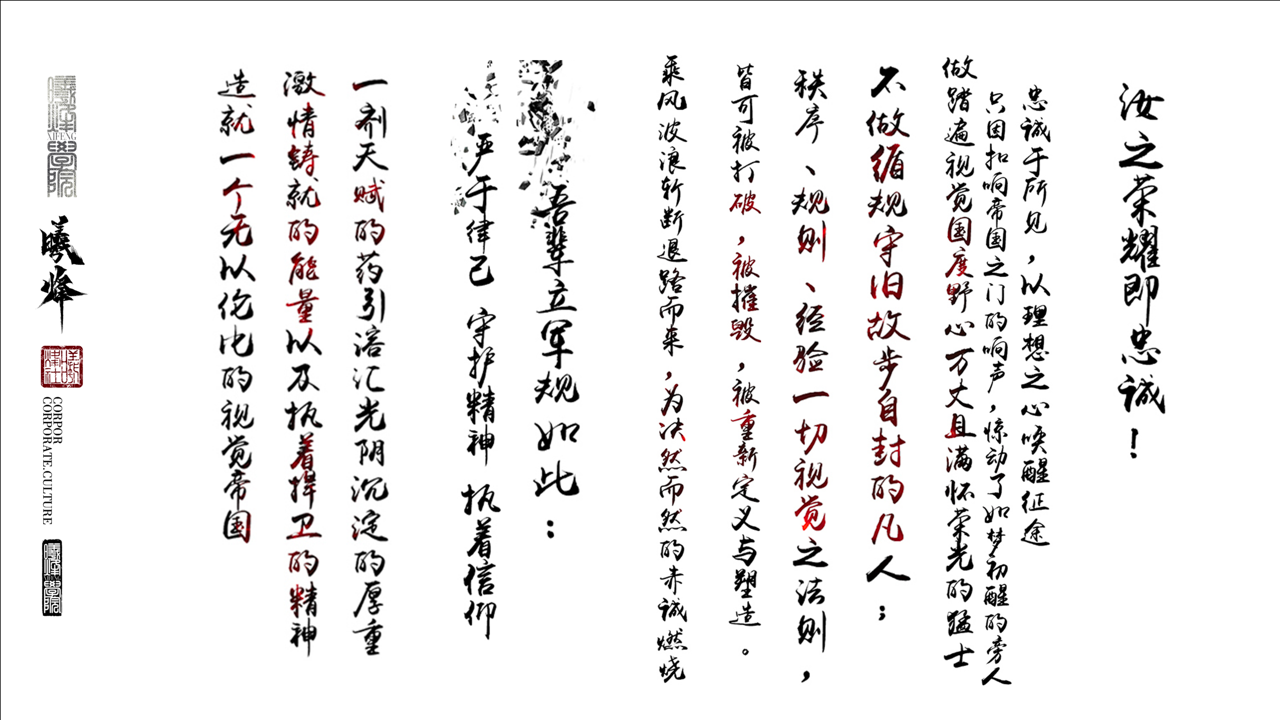 汝之荣耀即忠诚！
忠诚于所见，以理想之心唤醒征途
只因扣响帝国之门的响声，惊动了如梦初醒的旁人
做踏遍视觉国度野心万丈且满怀荣光的猛士
不做循规守旧故步自封的凡人；
秩序、规则、经验一切视觉之法则，
皆可被打破，被摧毁，被重新定义与塑造。
乘风波浪斩断退路而来，为决然而然的赤诚燃烧
吾辈立军规如此：
严于律己 守护精神 执着信仰
一剂天赋的药引溶汇光阴沉淀的厚重
激情铸就的能量以及执着捍卫的精神
造就一个无以伦比的视觉帝国
曦烽學院
曦烽
CORPOR
CORPORATE.CULTURE
曦烽學院